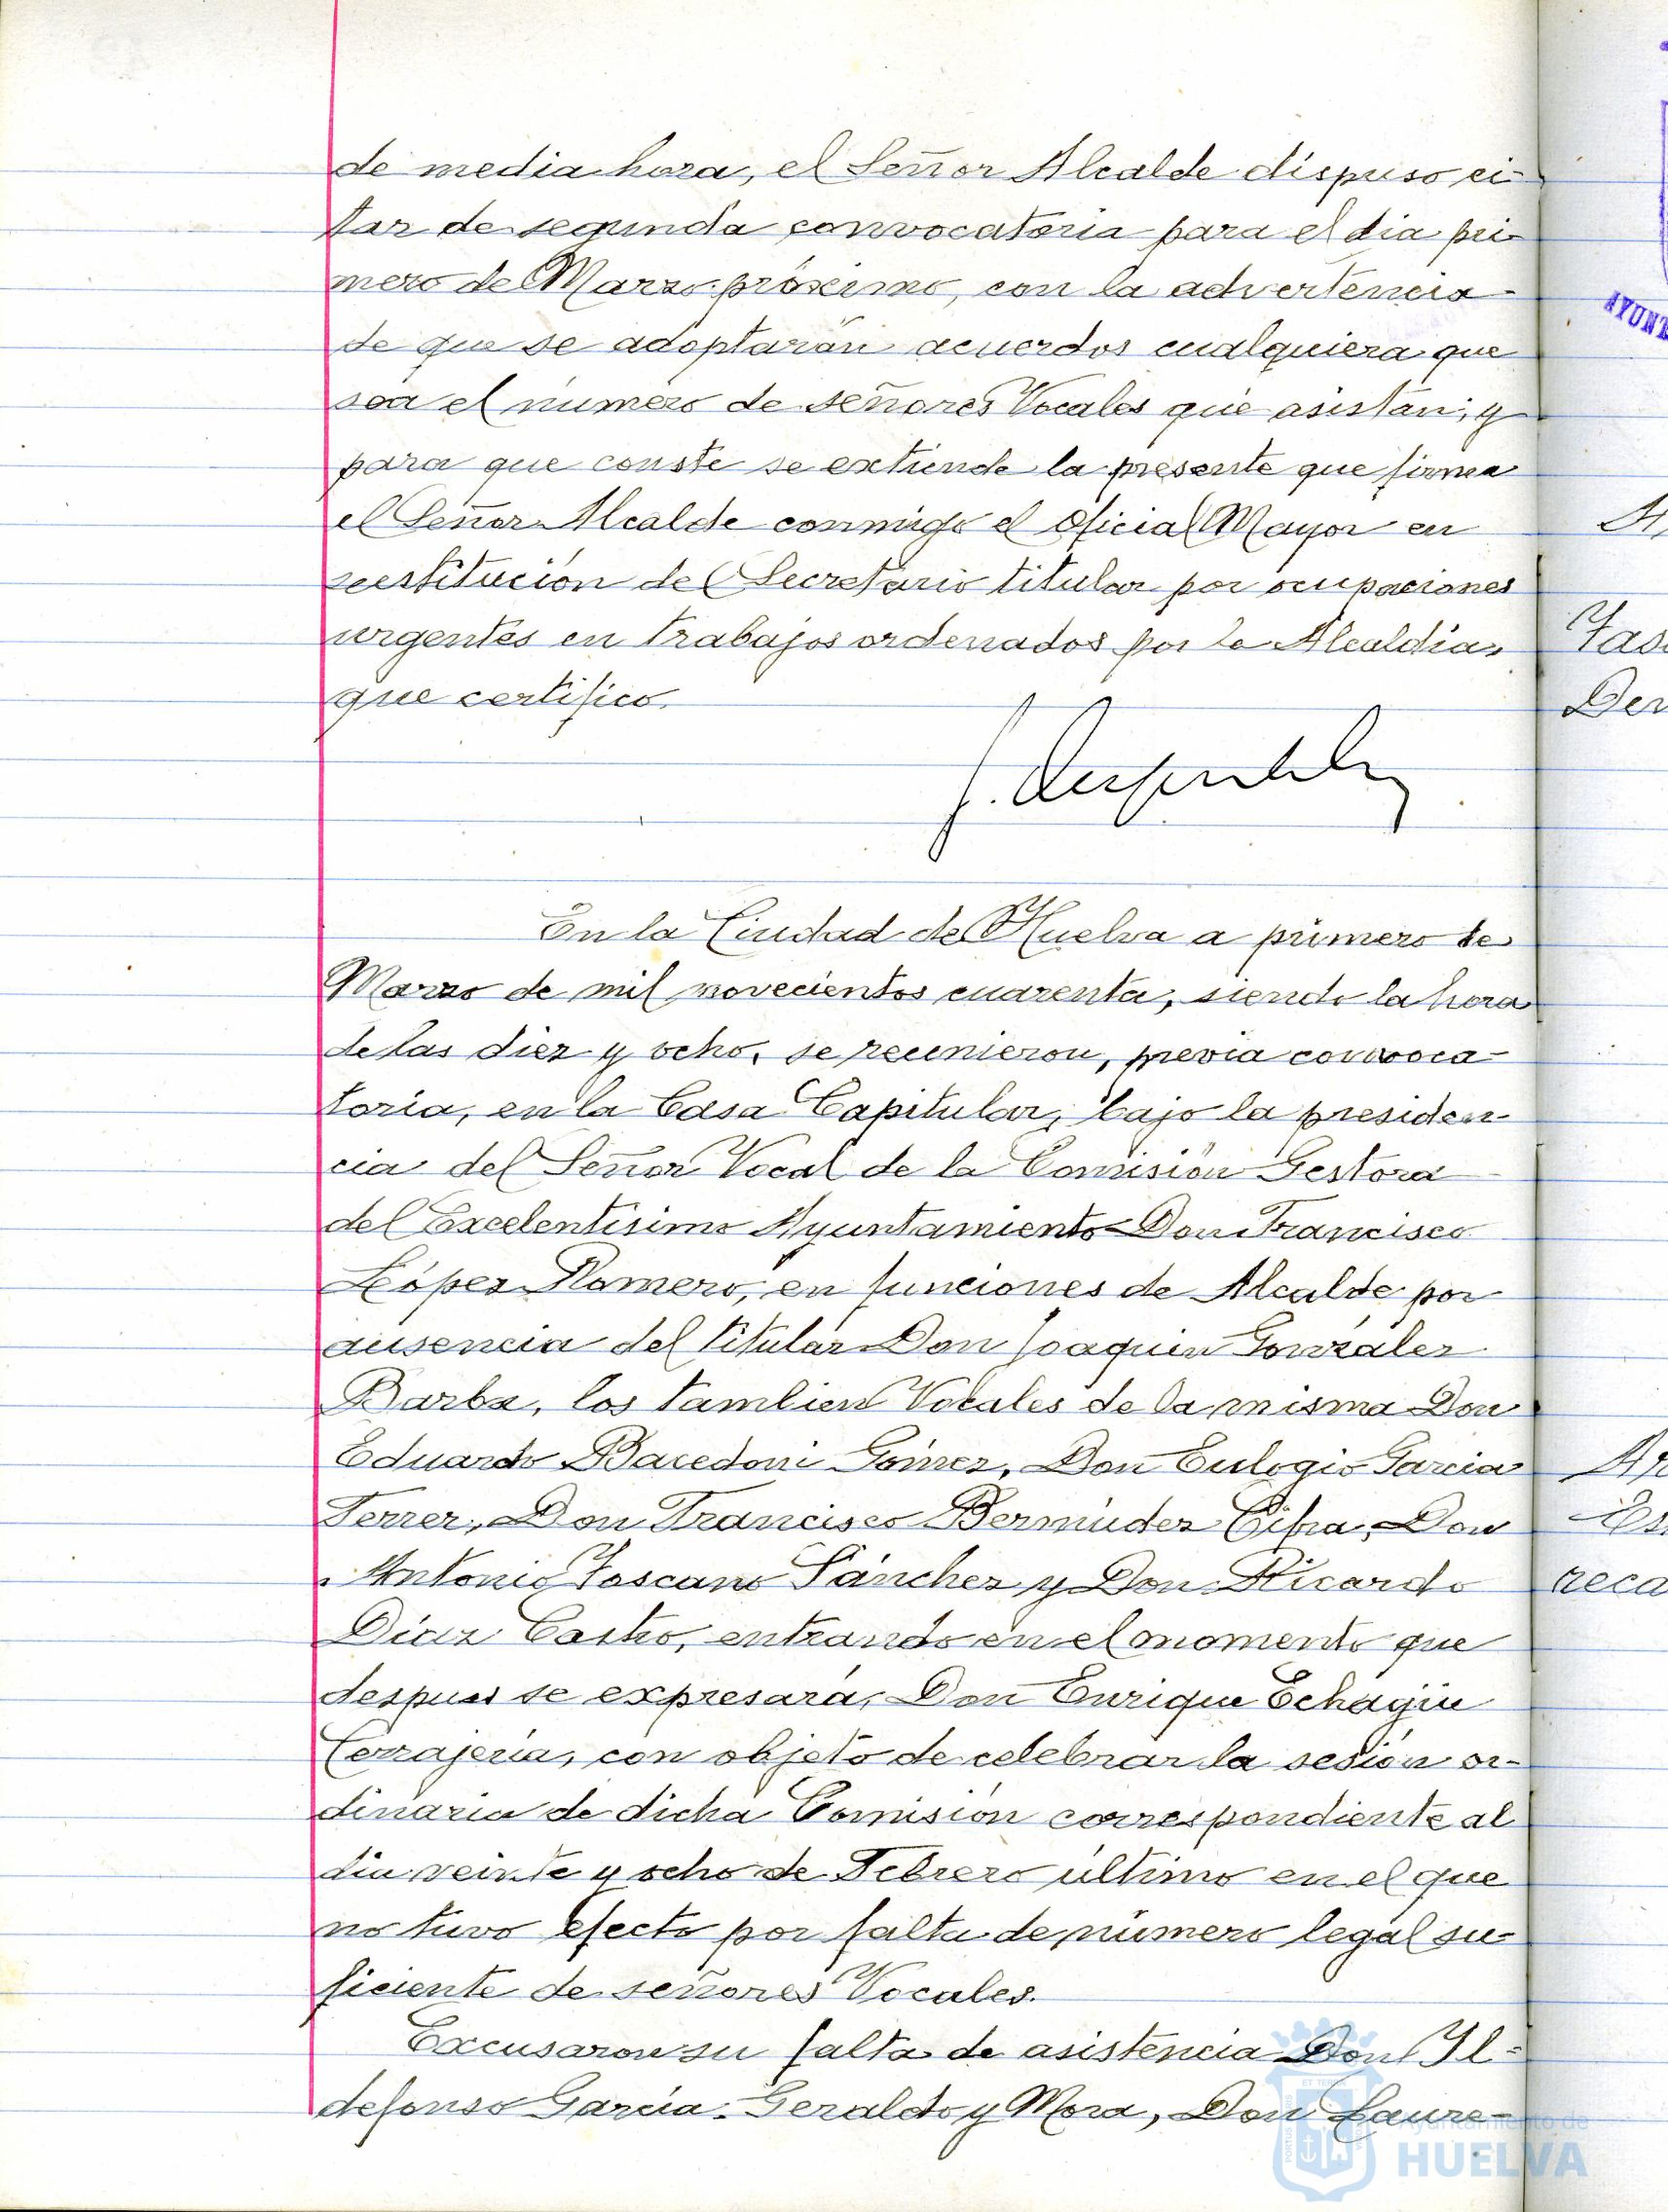 de media hora, el Señor Alcalde dispuso ci-
tar de segunda convocatoria para el dia pri-
mero de Marzo próximo, con la advertencia
de que se adoptarán acuerdos cualquiera que
sea el número de señores Vocales que asistan; y
para que conste se extiende la presente que firma
el Señor Alcalde conmigo el Oficial Mayor en
sustitución del Secretario titular por ocupaciones
urgentes en trabajos ordenados por la Alcaldía,
que certifico.
En la Ciudad de Huelva a primero de
Marzo de mil novecientos cuarenta, siendo la hora
de las diez y ocho, se reunieron, previa convoca-
toria, en la Casa Capitular, bajo la presiden-
cia del Señor Vocal de la Comisión Gestora
del Excelentísimo Ayuntamiento Don Francisco
López Romero, en funciones de Alcalde por
ausencia del titular Don Joaquin González
Barba, los tambien Vocales de la misma Don
Eduardo Bacedoni Gómez, Don Eulogio Garcia
Ferrer, Don Francisco Bermúdez Cifra, Don
Antonio Toscano Sánchez y Don Ricardo
Díaz Castro, entrando en el momento que
despues se expresará, Don Enrique Echágüe
Cerrajería, con objeto de celebrar la sesión or-
dinaria de dicha Comisión correspondiente al
dia veinte y ocho de Febrero último en el que
no tuvo efecto por falta de número legal su-
ficiente de señores Vocales.
Excusaron su falta de asistencia Don Il-
defonso García-Geraldo y Mora, Don Laure-
Ayuntamiento de
HUELVA
AYUNT
Den
reca